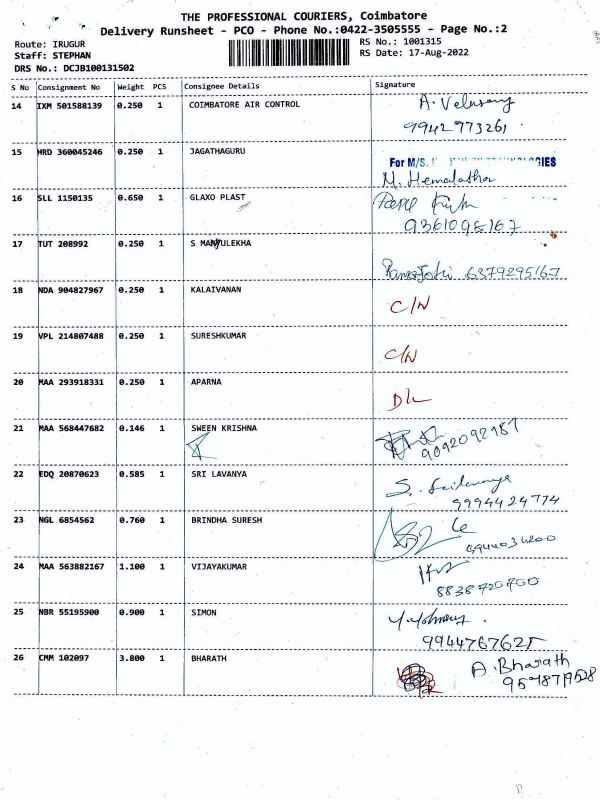 THE PROFESSIONAL COURIERS, Coimbatore
Delivery Runsheet - PCO - Phone No.:0422-3505555 - Page No.:2
Route: IRUGUR RS No.: 1001315
Staff: STEPHAN RS Date: 17-Aug-2022
DRS No.: DCJB100131502
S No Consignment No Weight PCS Consignee Details Signature
14 IXM 501588139 0.250 1 COIMBATORE AIR CONTROL A. Velusamy
9942973261
15 HRD 360045246 0.250 1 JAGATHAGURU
For M/S.
M. Hemalatha
16 SLL 1150135 0.650 1 GLAXO PLAST
9361095167
17 TUT 208992 0.250 1 S MANJULEKHA
6379295167
18 NDA 904827967 0.250 1 KALAIVANAN
C/N
19 VPL 214807488 0.250 1 SURESHKUMAR
C/N
20 MAA 293918331 0.250 1 APARNA
D/L
21 MAA 568447682 0.146 1 SWEEN KRISHNA
9092092987
22 EDQ 20870623 0.585 1 SRI LAVANYA
S.
9994424774
23 NGL 6854562 0.760 1 BRINDHA SURESH
24 MAA 563882167 1.100 1 VIJAYAKUMAR
8838720700
25 NBR 55195900 0.900 1 SIMON
9944767625
26 CMM 102097 3.800 1 BHARATH A. Bharath